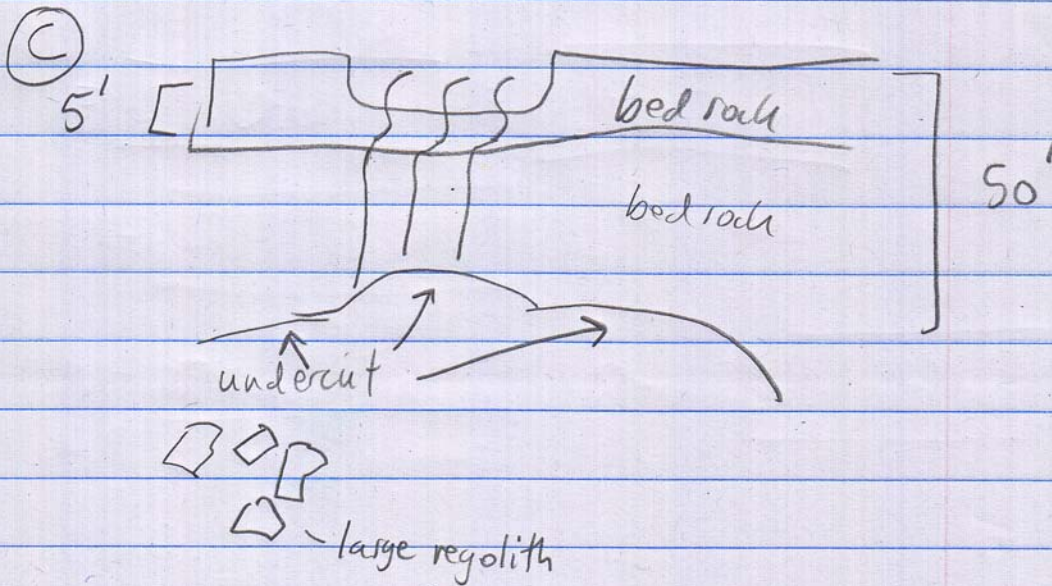 C
5'
bed rock
50'
bed rock
undercut
large regolith